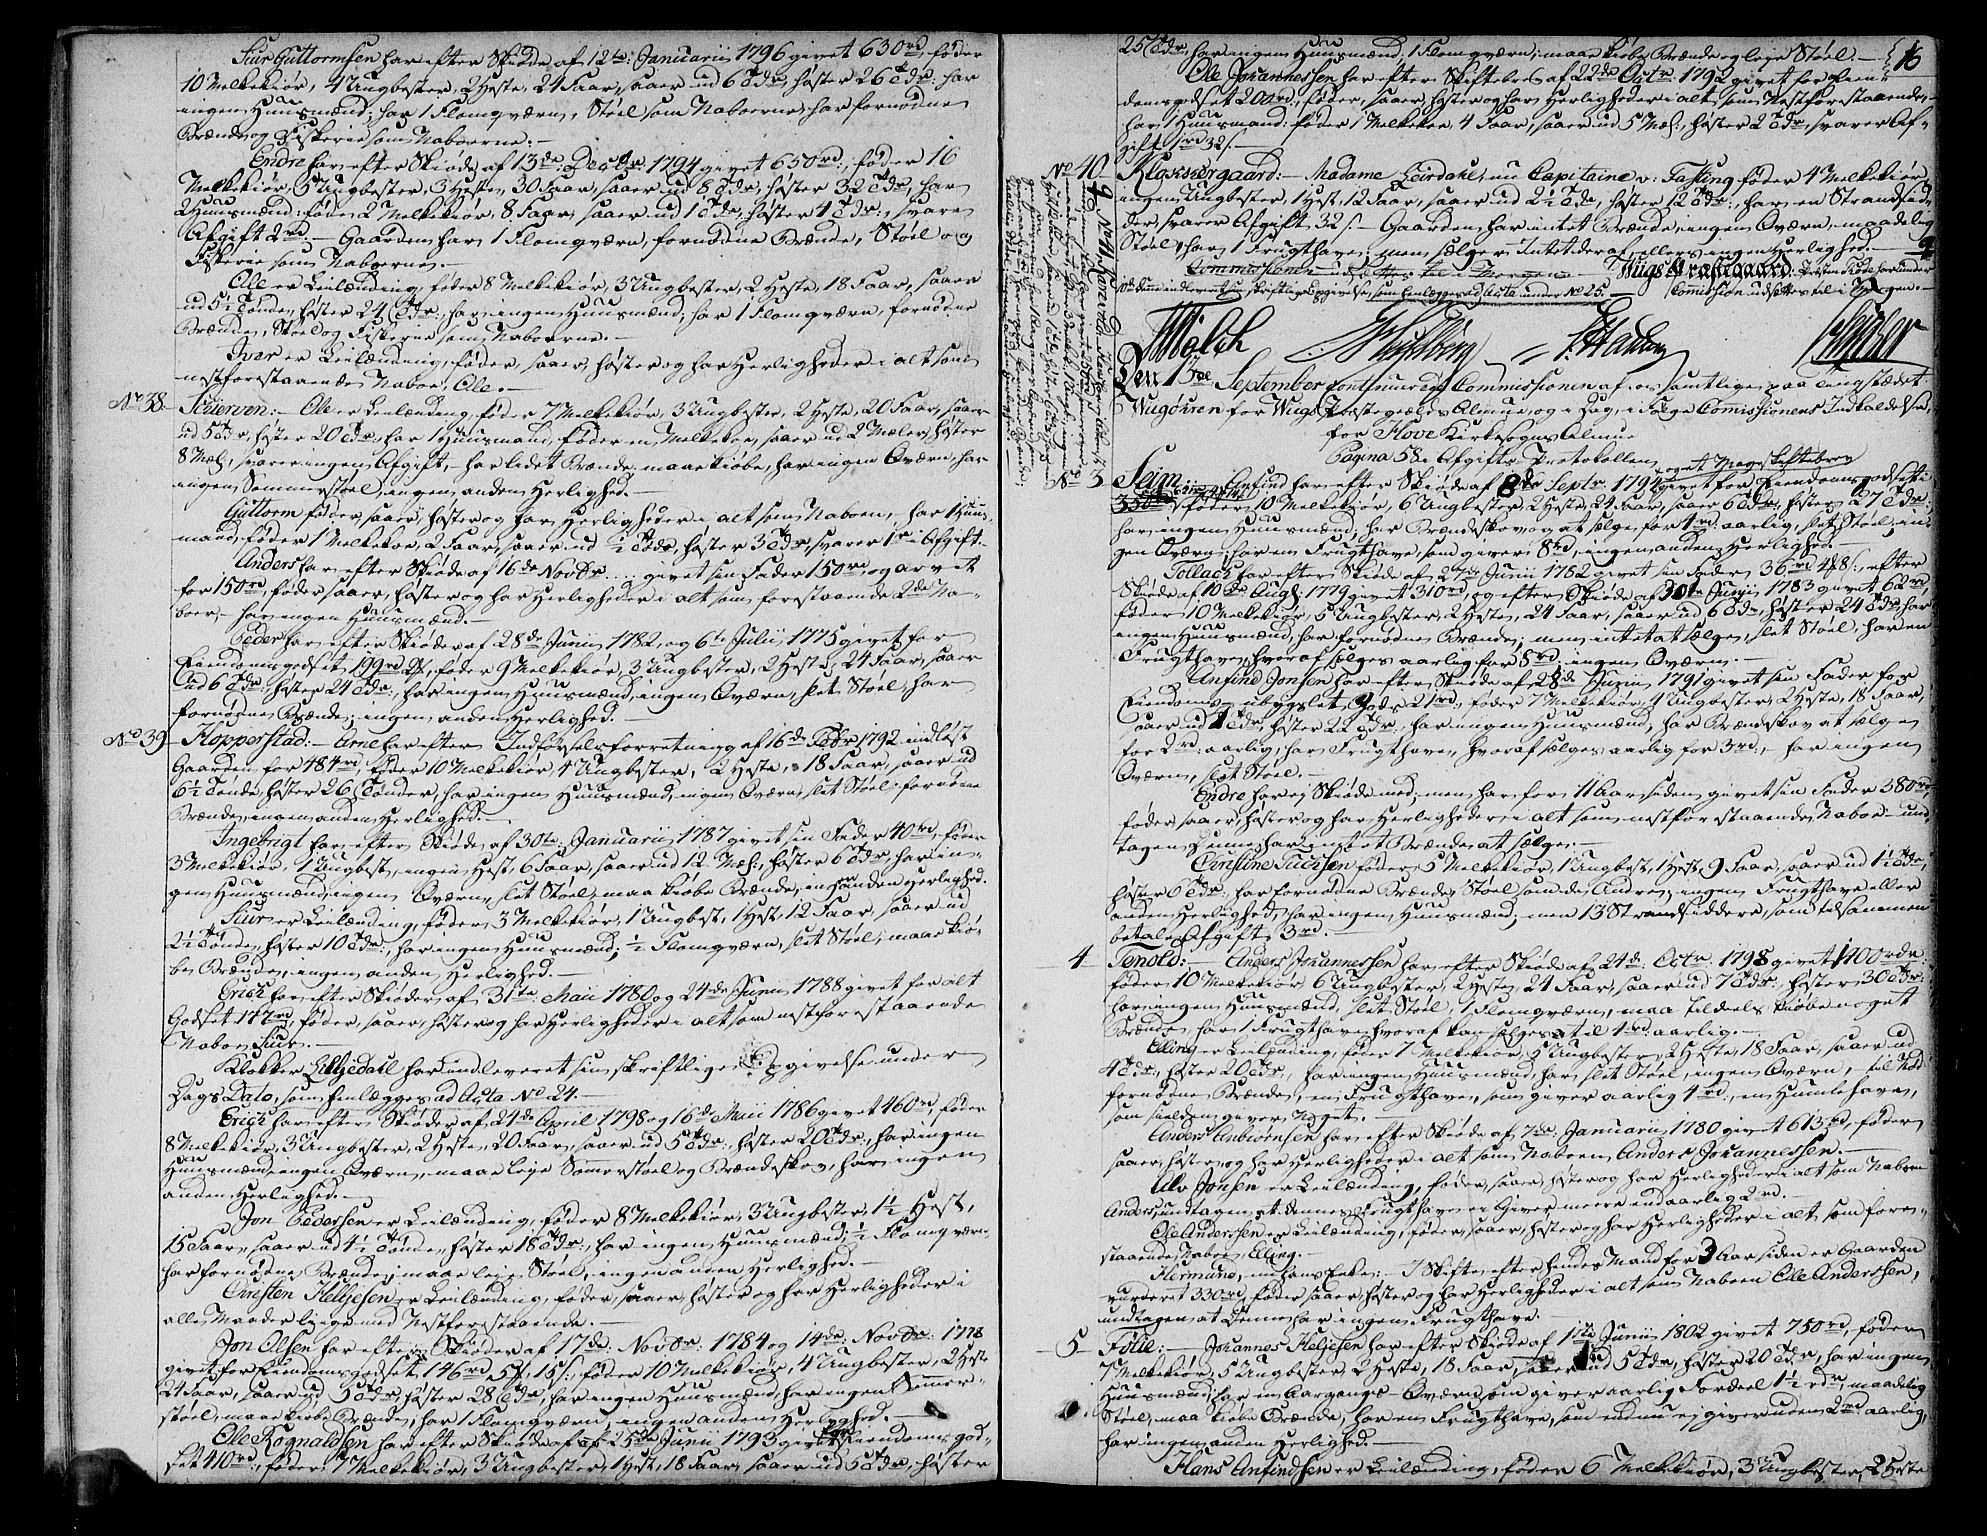 Siur Guttormsen har efter Skiøde af 12te Januarii 1796 givet 630rd, føder
10 Melkekiør, 4 Ungbester, 2 Heste, 24 Faar, saaer ud 6 Tdr, høster 26 Tdr: har
ingen Huusmænd; har 1 Flomqværn, Støel som Naboerne, har fornødne
Brænde og Fiskerie som Naboerne.-
Endre har efter Skiøde af 13de Decbr 1794 givet 650rd, føder 16
Melkekiør, 5 Ungbester, 3 Heste, 30 Faar, saaer ud 8 Tdr, høster 32 Tdr, har
2 Huusmænd, føder 2 Melkekiør, 8 Faar, saaer ud 1 Tdr, høster 4 Tdr, svarer
Afgift 2rd.- Gaarden har 1 Flomqværn, fornødne Brænde, Støel og
Fiskerie som Naboerne.-
Ole er Leilænding, føder 8 Melkekiør, 3 Ungbester, 2 Heste, 18 Faar, saaer
ud 5½ Tønde, høster 24 Tdr, har ingen Huusmænd, har 1 Flomqværn, fornødne
Brænde, Støel og Fiskerie som Naboerne.-
Iver er Leilænding, føder, saaer, høster og har Herligheder i alt som
nestforestaaende Naboe, Ole.-
No 38. Schierven:- Ole er Leilænding, føder 7 Melkekiør, 3 Ungbester, 2 Heste, 20 Faar, saaer
ud 5 Tdr, høster 20 Tdr, har 1 Huusmand, føder en Melkekoe, saaer ud 2 Mæler, høster
8 Mæl:, svarer ingen Afgift,- har lidet Brænde, maae kiøbe, har ingen Qværn, har
ingen Sommerstøel, ingen anden Herlighed.-
Guttorm føder, saaer, høster og har Herligheder i alt som Naboen,- har 1 Huus-
mand, føder 1 Melkekoe, 2 Faar, saaer ud ½ Tdr, høster 3 Tdr, svarer 1rd i Afgift.-
Anders har efter Skiøde af 16de Novbr givet sin Fader 150rd, og arvet
for 150rd, føder, saaer, høster og har Herligheder i alt som forestaaende 2de Na-
boer,- har ingen Huusmænd.-
Peder har efter Skiøder af 28de Junii 1782, og 6te Julii 1775 givet for
Eiendomsgodset 199rd, føder 9 Melkekiør, 3 Ungbester, 2 Heste, 24 Faar, saaer
ud 6 Tdr, høster 24 Tdr, har ingen Huusmænd, ingen Qværn, slet Støel, har
fornødne Brænde, ingen anden Herlighed.-
No 39 Hopperstad.- Arne har efter Indførselsforretning af 16de Febr 1792 indløst
Gaarden for 484rd, føder 10 Melkekiør, 4 Ungbester, 2 Heste, 18 Faar, saaer ud
6½ Tønde, høster 26 Tønder, har ingen Huusmænd, ingen Qværn, slet Støel, fornødne
Brænde, ingen anden Herlighed.-
Ingebrigt har efter Skiøde af 30te Januarii 1787 givet sin Fader 40rd, føder
3 Melkekiør, 1 Ungbest, ingen Hest, 6 Faar, saaer ud 12 Mæl:, høster 6 Tdr, har in-
gen Huusmænd, ingen Qværn, slet Støel, maa kiøbe Brænde, ingen anden Herlighed.
Siur er Leilænding, føder 3 Melkekiør, 1 Ungbest, 1 Hest, 12 Faar, saaer ud
2½ Tønde, høster 10 Tdr, har ingen Huusmænd, ½ Flomqværn, slet Støel, maae kiø-
be Brænde, ingen anden Herlighed.-
Erich har efter Skiøder af 31te Maii 1780 og 24de Junii 1788 givet for alt
Godset 177rd, føder, saaer, høster og har Herligheder i alt som nestforestaaende
Naboe Siur.-
Klokker Lilljedahl har indleveret sin skriftlige Opgivelse under
Dags Dato, som Indlægges ad Acta No 24.-
Erich har efter Skiøder af 24de April 1798 og 16de Maii 1786 givet 460rd, føder
8 Melkekiør, 3 Ungbester, 2 Heste, 20 Faar, saaer ud 5 Tdr, høster 20 Tdr, har ingen
Huusmænd, ingen Qværn, maae leje Sommerstøel og Brændeskov, har ingen
anden Herlighed.-
Jon Pedersen er Leilænding, føder 8 Melkekiør, 3 Ungbester, 1½ Hest,
15 Faar, saaer ud 4½ Tønde, høster 18 Tdr, har ingen Huusmænd, ½ Flomqværn,
har fornødne Brænde, maae leje Støel, ingen anden Herlighed.-
Christen Heljesen er Leilænding, føder, saaer, høster og har Herligheder i
alle Maader liige med Nestforestaaende.-
Jon Olsen har efter Skiøder af 17de Novbr 1784 og 14de Novbr 1778
givet for Eiendomsgodset 146rd 5 15s, føder 10 Melkekiør, 4 Ungbester, 2 Heste
24 Faar, saaer ud 5 Tdr, høster 28 Tdr, har ingen Huusmænd, har ingen Sommer-
støel, maae kiøbe Brænde, har 1 Flomqværn, ingen anden Herlighed.-
Ole Rognaldsen har efter Skiøde af 25de Junii 1793 givet for Eiendomsgod-
set 410rd, føder 7 Melkekiør, 3 Ungbester, 1 Hest, 18 Faar, saaer ud 5 Tdr, høster
16
25 Tdr, har ingen Huusmænd, 1 Flomqværn, maae kiøbe Brænde og leje Støel.-
Ole Johannessen har efter Skiftebrev af 22de Octr 1792 givet for Eien-
domsgodset 200rd, føder, saaer, høster og har Herligheder i alt som Nestforestaaende,-
har 1 Huusmand, føder 1 Melkekoe, 4 Faar, saaer ud 5 Mæl:, høster 2 Tdr, svarer Af-
gift 1rd 32s.-
No 40 Klosiærgaard:- Madame Leirdahl, nu Capitaine v: Fasting føder 4 Melkekiør,
ingen Ungbester, 1 Hest, 12 Faar, saaer ud 2½ Tdr, høster 12 Tdr, har en Strandsid-
der, svarer Afgift 32s.- Gaarden har intet Brænde, ingen Qværn, maadelig
Støel, har 1 Frugthave, men sælger Intet deraf, ellers ingen Herlighed.-
Commissionen udsættes til i Morgen.- Wiigs Præstegaard.
som Indlægges ad Acta under No 25 Commission udsættes til i Morgen.-
Den 1ste September continuerede Commissionen af os samtlige paa Tingstædet
Wugøuren for Wiigs Præstegields Almue, og i Dag, i Følge Commissionens Indkaldelse,
for Hove Kirkesogns Almue
Pagina 58 i Afgifts-Protocollen
No 3 Seim:- Anfind har efter Skiøde af 8de Septr 1794 givet for Eiendomsgodset
350rd føder 10 Melkekiør, 6 Ungbester, 2 Heste, 24 Faar, saaer 6 Tdr, høster 27 Tdr:
har ingen Huusmænd, har Brændeskov og at sælge for 4rd aarlig, slet Støel, in-
gen Qværn, har en Frugthave, som giver 8rd, ingen anden Herlighed.-
Tollach har efter Skiøde af 27de Junii 1782 givet sin Fader 36rd 48s, efter
Skiøde af 10de Aug: 1779 givet 310rd, og efter Skiøde af 30te Junii 1783 givet 62rd,
føder 10 Melkekiør, 5 Ungbester, 2 Heste, 24 Faar, saaer ud 6 Tdr, høster 24 Tdr, har
ingen Huusmænd, har fornødne Brænde, men intet at sælge, slet Støel, har en
Frugthave, hvoraf sælges aarlig for 8rd, ingen Qværn.-
Anfind Jonsen har efter Skiøde af 28de Junii 1791 givet sin Fader for
Eiendoms ubygslet Gods 21rd, føder 7 Melkekiør, 4 Ungbester, 2 Heste, 18 Faar,
saaer ud Tdr, høster 22 Tdr, har ingen Huusmænd, har Brændeskov at sælge
for 2rd aarlig, har Frugthave, hvoraf sælges aarlig for 3rd,- har ingen
Qværn, slet Støel.-
Endre har ej Skiøde med, men har for 11 Aar siden givet sin Fader 380rd,
føder, saaer, høster og har Herligheder i alt som nestforestaaende Naboe und-
tagen Denne har intet Brænde at sælge.-
Christine føder 5 Melkekiør, 1 Ungbest, 1 Hest, 9 Faar, saaer ud 1½ Tdr,
høster 6 Tdr, har fornødne Brænde, Støel som de Andre, ingen Frugthave eller
anden Herlighed, har ingen Huusmænd, men 13 Strandsiddere, som tilsammen
betale Afgift 3rd.-
4 Tenold:- Anders Johannessen har efter Skiøde af 24de Octr 1798 givet 1400rdr,
føder 10 Melkekiør, 6 Ungbester, 2 Heste, 24 Faar, saaer ud 7 Tdr, høster 30 Tdr,
har ingen Huusmænd, slet Støel, 1 Flomqværn, maa tildeels kiøbe noget
Brænde, har 1 Frugthave hvoraf kan sælges til 1rd aarlig.-
Elling er Leilænding, føder 7 Melkekiør, 5 Ungbester, 2 Heste, 18 Faar, saaer ud
4 Tdr, høster 20 Tdr, har ingen Huusmænd, har slet Støel, ingen Qværn, til Nød
fornødne Brænde, en Frugthave, som giver aarlig 4rd, en Humlehave,
som sielden giver Noget.
Anders Anbiørnsen har efter Skiøde af 7de Januarii 1780 givet 613rd, føder,
saaer, høster og har Herligheder i alt som Naboen Anders Johannessen.-
Ole Jonsen er Leilænding, føder, saaer, høster og har Herligheder i alt som Naboen
Anders undtagen at Dennes Frugthave ei Giver meere end aarlig 2rd.-
Ole Anderssen er Leilænding, føder, saaer, høster og har Herligheder i alt som fore-
staaende Naboe, Elling.-
Hermund, nu hans Enke:- I Skifte efter hendes Mand for 3 Aar siden er Gaarden
vurderet 330rd, føder saaer, høster og har Herligheder i alt som Naboen Ole Anderssen,
undtagen, at Denne har ingen Frugthave.-
5 Føllie:- Johannes Heljesen har efter Skiøde af Junii 1802 givet 750rd, føder
7 Melkekiør, 5 Ungbester, 2 Heste, 18 Faar, saaer ud 5 Tdr, høster 20 Tdr, har ingen
Huusmænd, har en Aargangs-Qværn, som giver aarlig Fordeel 1½ rdr, maadelig
Støel, maa kiøbe Brænde, har en Frugthave, som endnu ej giver uden 2rd aarlig,
har ingen anden Herlighed.-
Hans Anfindsen er Leilænding, føder 6 Melkekiør, 3 Ungbester, 2 Heste